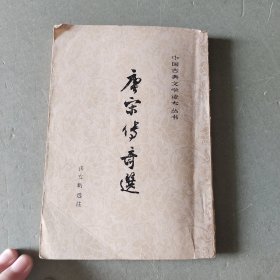 中国古典文学读本丛书
唐宋传奇選
张友鹤选注